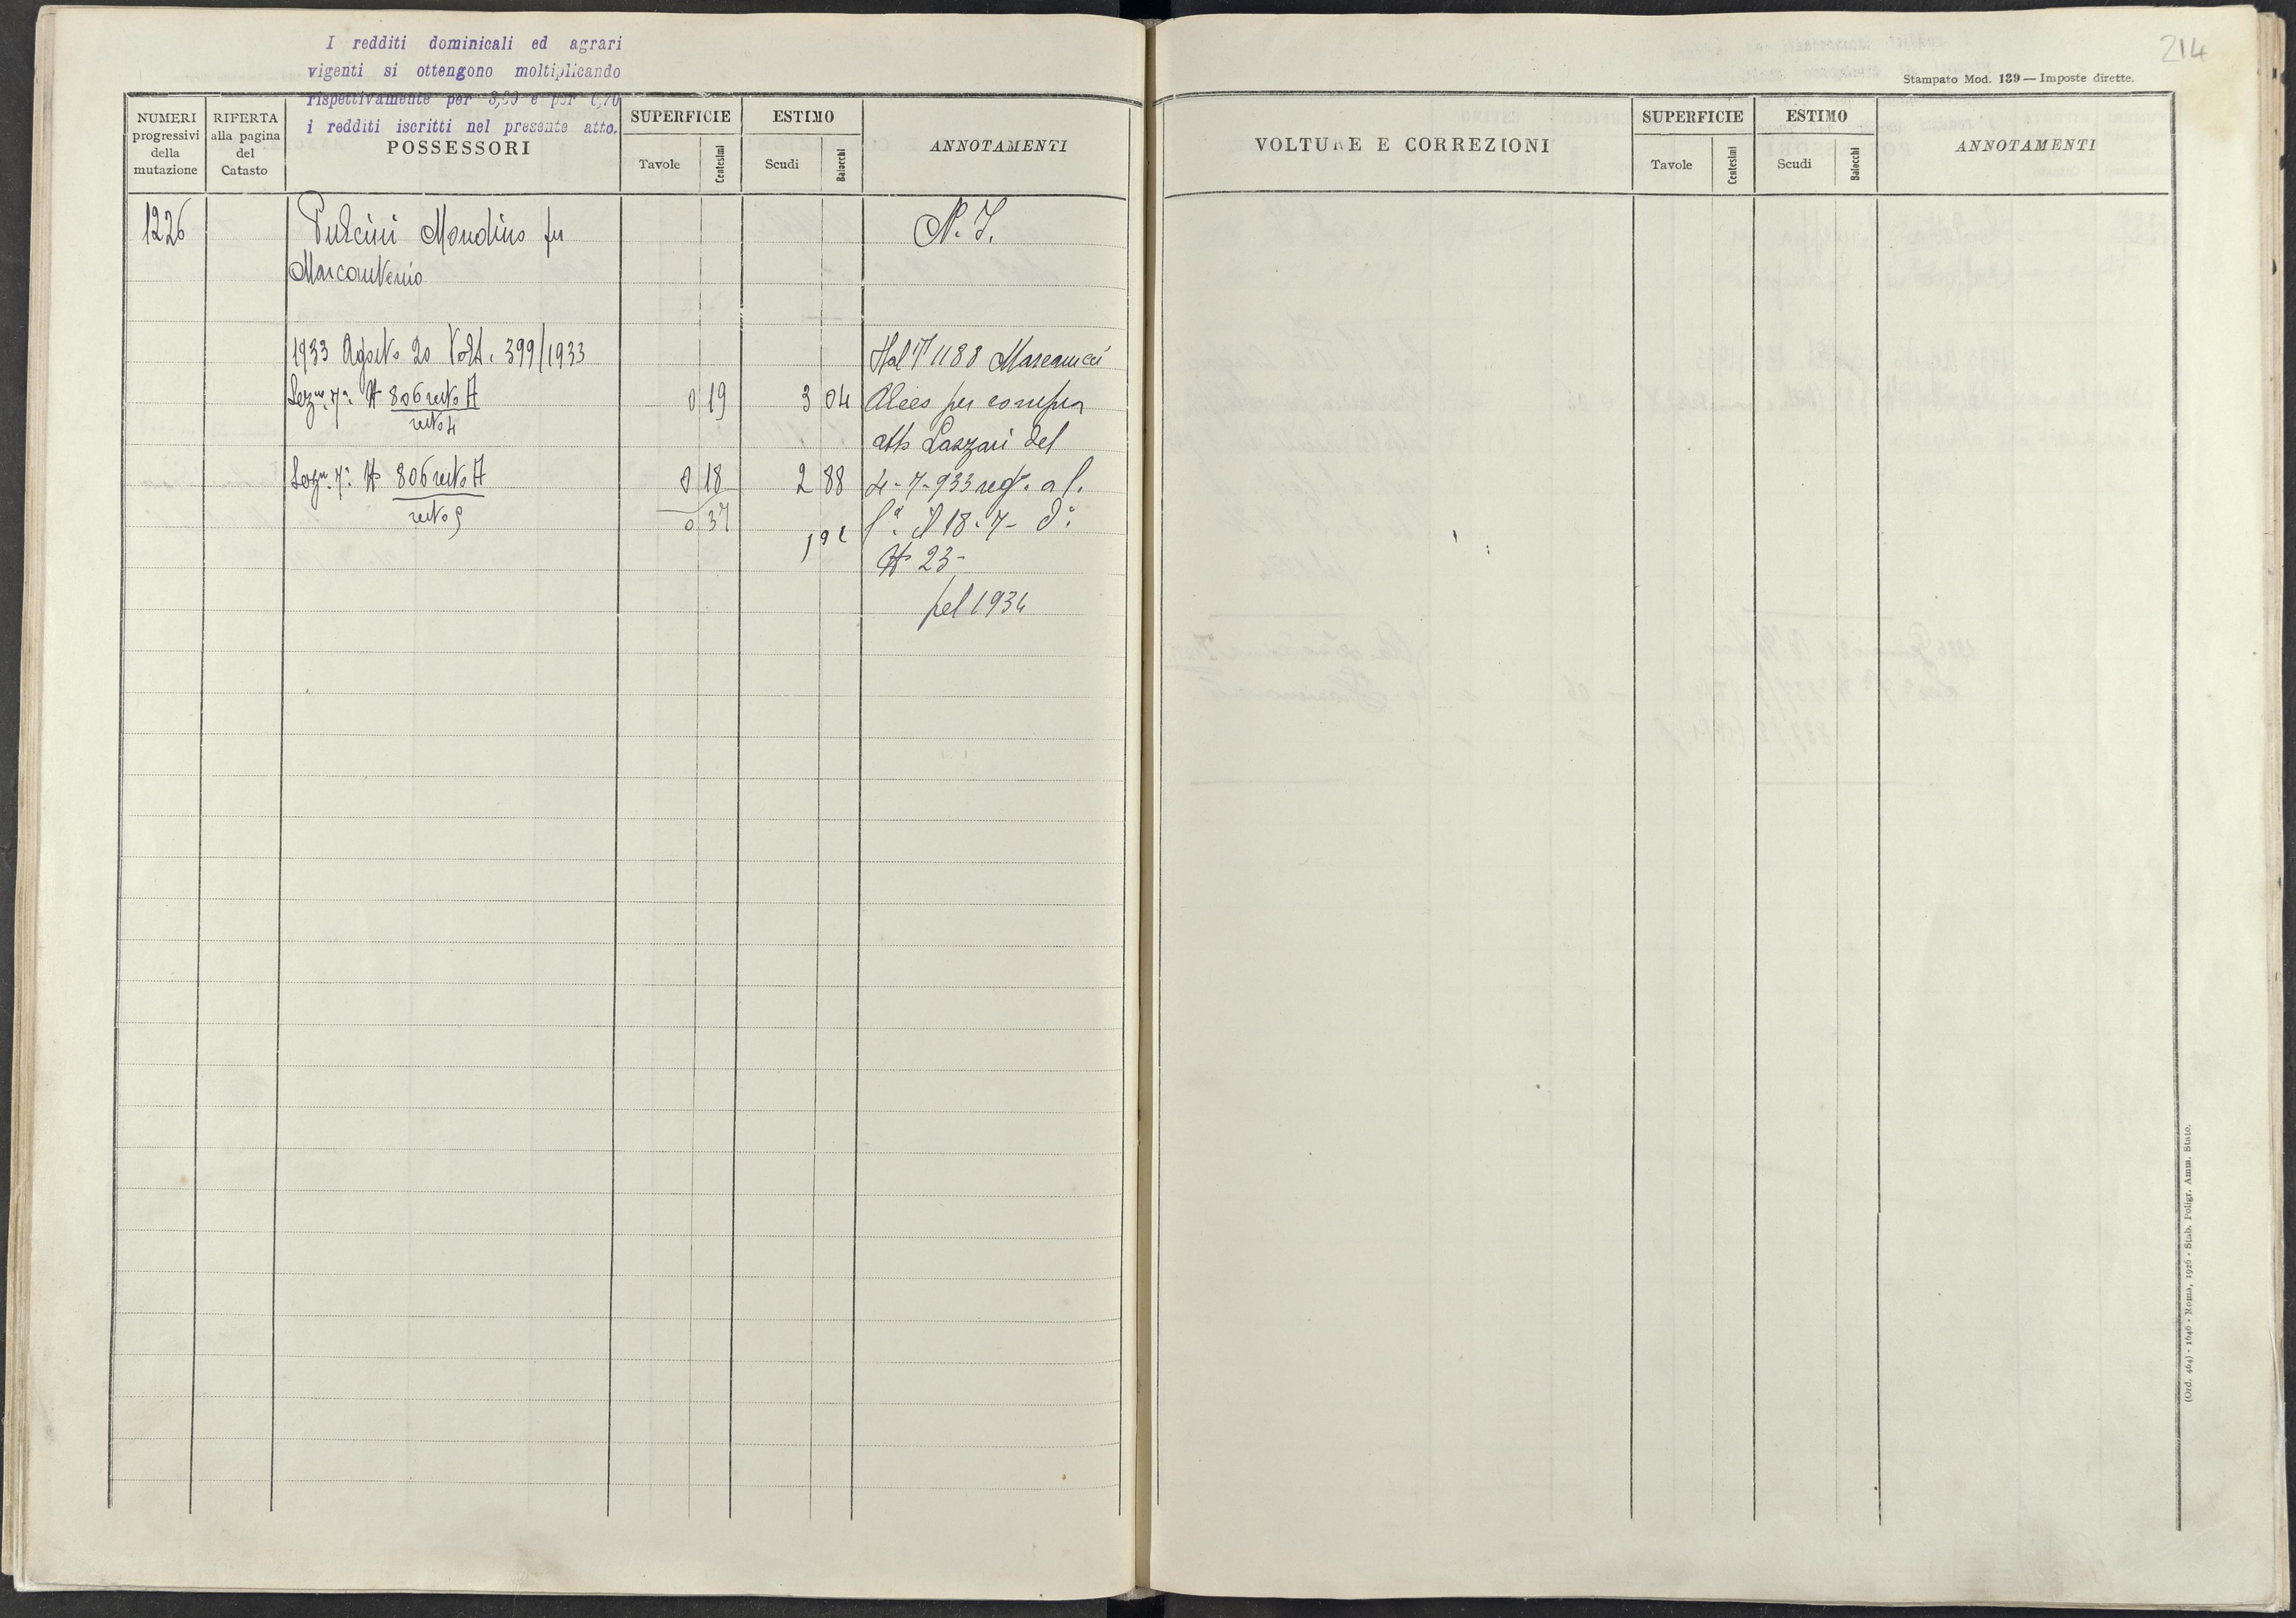 I redditi dominicali ed agrari
vigenti si ottengono moltiplicando
rispettivamente per e per 0,70
i redditi iscritti nel presente atto.
NUMERI progressivi della mutazione
RIFERTA alla pagina del Catasto
POSSESSORI
SUPERFICIE
Tavole
Centesimi
ESTIMO
Scudi
Baiocchi
ANNOTAMENTI
1226
Pulcini Mondino fu
N. I.
Marcantonio
1933 Agosto 20 Volt. 399/1933
Dal N 1188
Sezne 7a N 806 resto A
0 19
3 04
Alceo per compra
resto 4
atto Lazzari del
Sezne 7a N 806 resto A
0 18
2 88
4-7-933 regto a
resto 5
0 37
il 18-7- do
N 23-
pel 1934
214
Stampato Mod. 139 — Imposte dirette.
VOLTURE E CORREZIONI
SUPERFICIE
Tavole
Centesimi
ESTIMO
Scudi
Baiocchi
ANNOTAMENTI
(Ord. 464) - 1646 - Roma, 1926 - Stab. Poligr. Amm. Stato.